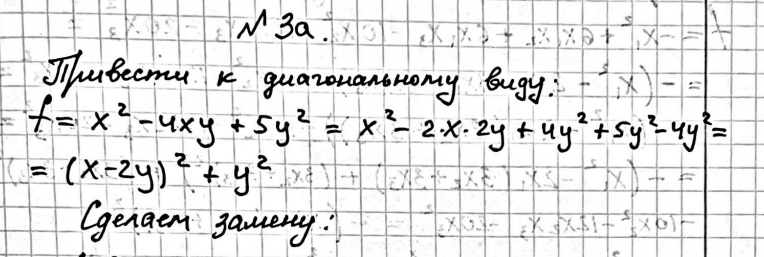 № 3а.
Привести к диагональному виду:
f = x² - 4xy + 5y² = x² - 2·x·2y + 4y² + 5y² - 4y² =
= (x-2y)² + y²
Сделаем замену: